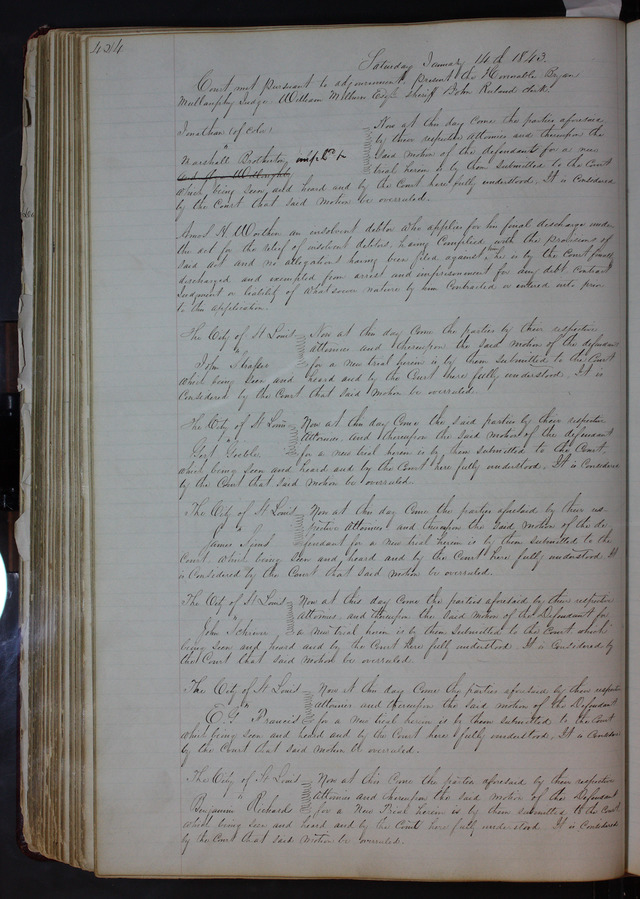 424
Saturday January 14th 1843.
Court met pursuant to adjournment present the Honorable Bryan
Mullanphy Judge William Milburn Esqr Sheriff & John Ruland clerk
Jonathan (of color)
Marshall Brotherton
Now at this day Come the parties aforesaid
by their respective attornies and thereupon the
said motion of the defendants for a new
trial herein is by them submitted to the Court
which being seen and heard and by the Court here fully understood. It is Considered
by the Court that said motion be overruled.
Amos H. an insolvent debtor who applies for his final discharge under
the act for the relief of insolvent debtors, having Complied with the provisions of
said act and no allegations having been filed against he is by the Court finally
discharged and exempted from arrest and imprisonment for any debt Contract
Judgment or liability of whatsoever nature by him Contracted or entered into prior
to this application.
The City of St Louis
"
John
Now at this day Come the parties by their respective
attornies and thereupon the said motion of the defendant
for a new trial herein is by them submitted to the Court
which being seen and heard and by the Court here fully understood. It is
Considered by the Court that said motion be overruled.
The City of St Louis
"
Now at this day Come the said parties by their respective
attornies and thereupon the said motion of the defendant
for a new trial herein is by them submitted to the Court,
which being seen and heard and by the Court here fully understood. It is Considered
by the Court that said motion be overruled.
The City of St Louis
"
James
Now at this day Come the parties aforesaid by their res-
pective attornies and thereupon the said motion of the de-
fendant for a new trial herein is by them submitted to the
Court which being seen and heard and by the Court here fully understood It
is Considered by the Court that said motion be overruled.
The City of St Louis
"
John
Now at this day Come the parties aforesaid by their respective
attornies and thereupon the said motion of the Defendant for
a new trial herein is by them submitted to the Court which
being seen and heard and by the Court here fully understood. It is Considered by
the Court that said motion be overruled.
The City of St Louis
"
E. G. Francis
Now at this day Come the parties aforesaid by their respective
attornies and thereupon the said motion of the Defendant
for a new trial herein is by them submitted to the Court
which being seen and heard and by the Court here fully understood, It is Consider
by the Court that said motion be overruled.
The City of St Louis
"
Benjamin Richards
Now at this Come the parties aforesaid by their respective
attornies and thereupon the said motion of the Defendant
for a New Trial herein is by them submitted to the Court
which being seen and heard and by the Court here fully understood It is Considered
by the Court that said motion be overruled.